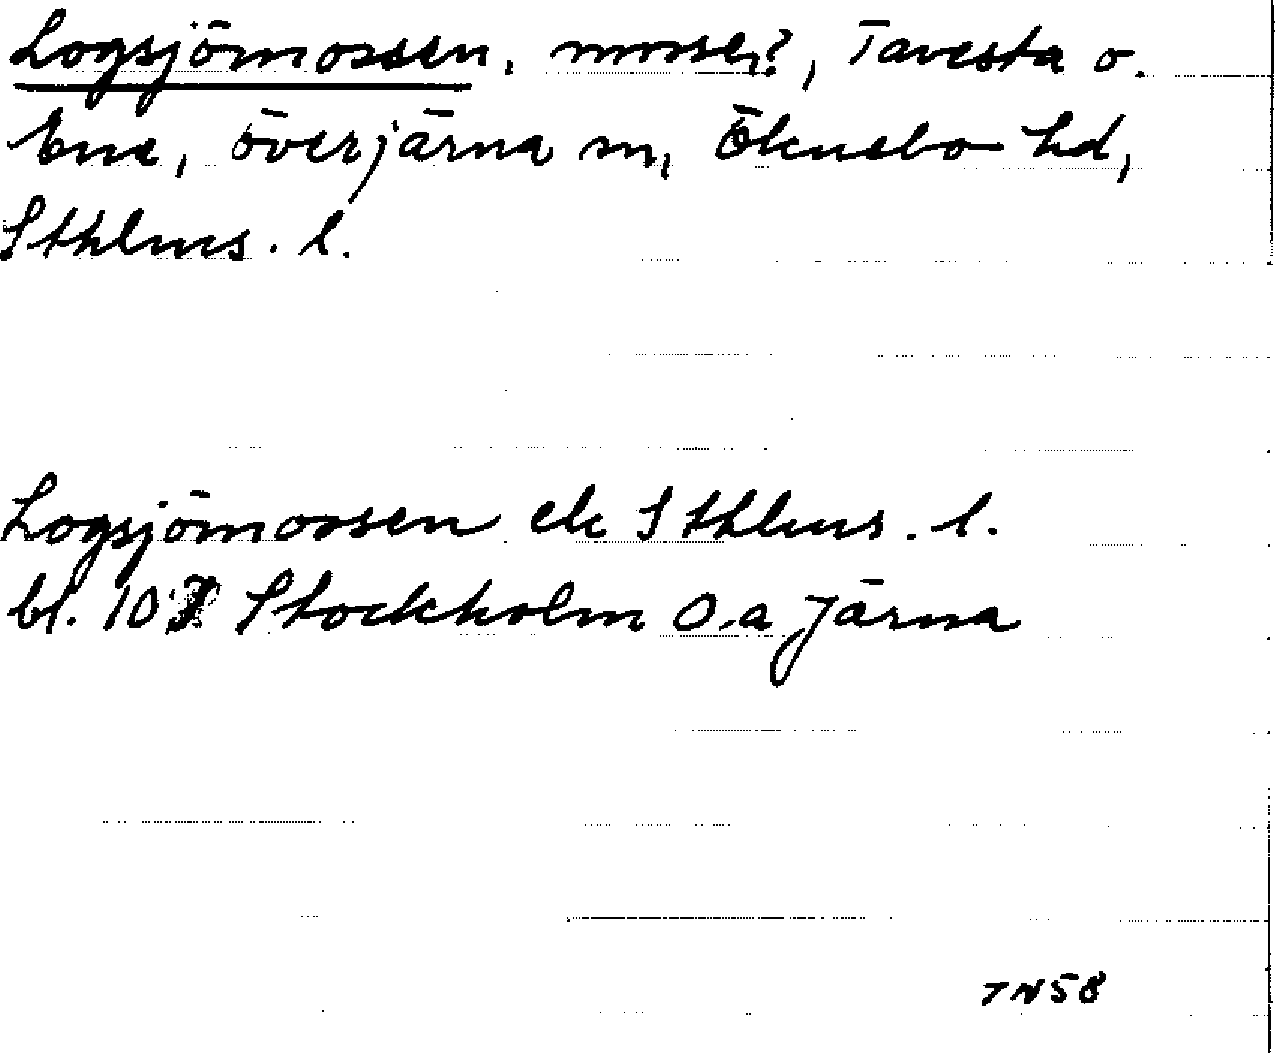 Logsjömossen, mosse?, Tavesta o.
Ene, Överjärna sn, Öknebo hd,
Sthlms. l.
Logsjömossen ek Sthlms. l.
bl. 10 Stockholm O.a Järna
TN58